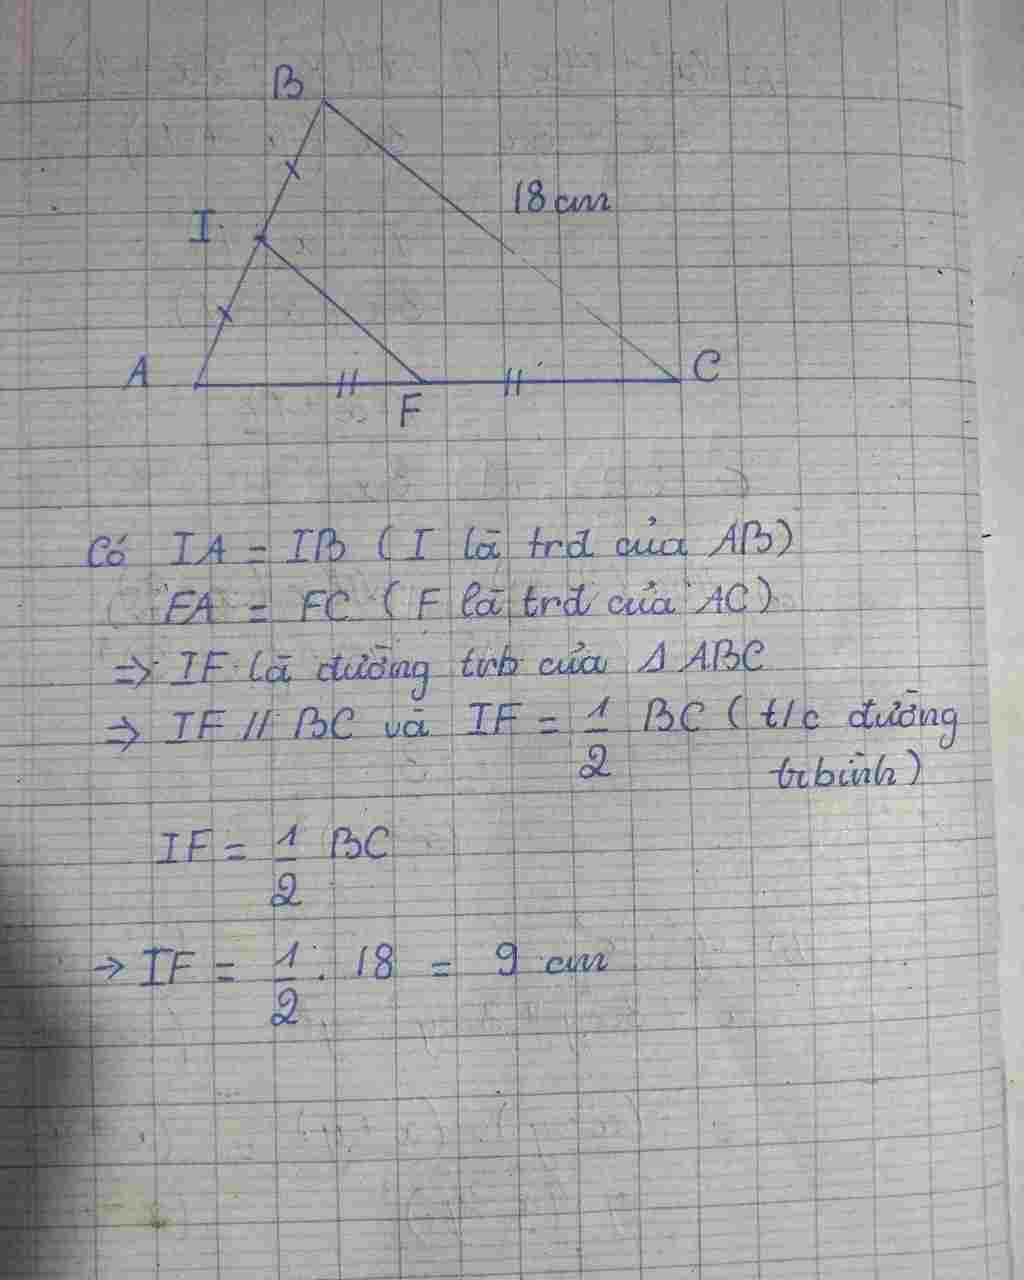 B
18 cm
I
A
C
F
Có IA = IB ( I là trđ của AB)
FA = FC ( F là trđ của AC)
=> IF là đường trb của Δ ABC
=> IF // BC và IF = 1/2 BC ( t/c đường
trbình)
IF = 1/2 BC
→ IF = 1/2 . 18 = 9 cm